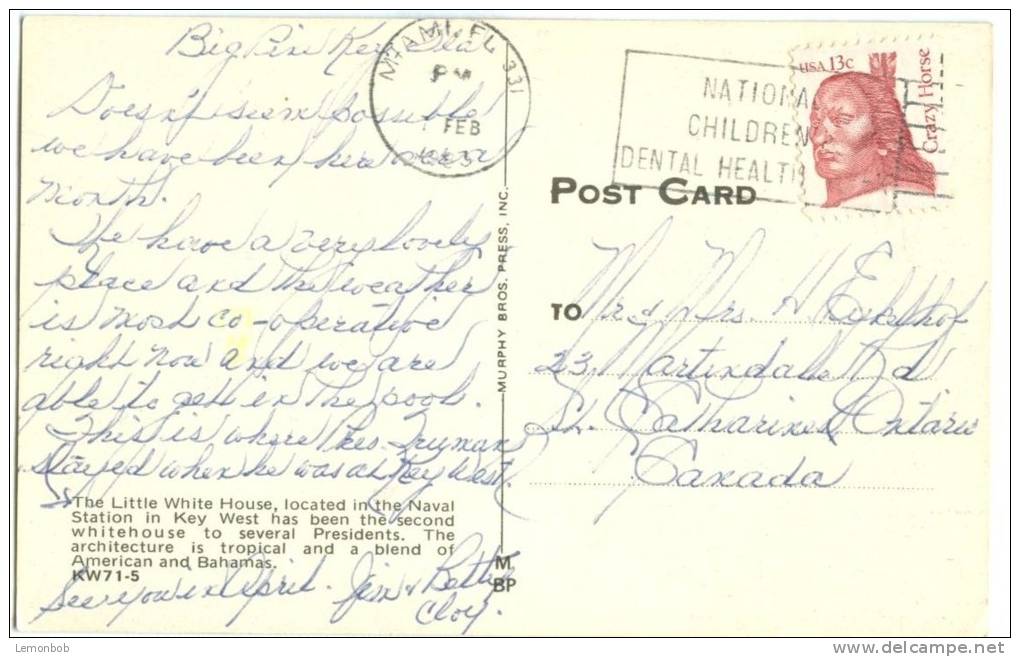 Big Pine Key Fla
Doesn't seem possible
we have been here over a
month.
We have a very lovely
place and the weather
is most co-operative
right now and we are
able to get in the pool.
This is where Pres. Truman
stayed when he was at Key West.
The Little White House, located in the Naval
Station in Key West has been the second
whitehouse to several Presidents. The
architecture is tropical and a blend of
American and Bahamas.
KW71-5
See you in April. Jim & Betty
Cloy.
MURPHY BROS. PRESS, INC.
M
BP
MIAMI, FL 331
PM
FEB
1983
NATIONAL
CHILDREN
DENTAL HEALTH
USA 13c
Crazy Horse
POST CARD
TO
Mr & Mrs. H Eykelhof
23 Martindale Rd
St. Catharines Ontario
Canada
Lemonbob
www.delcampe.net